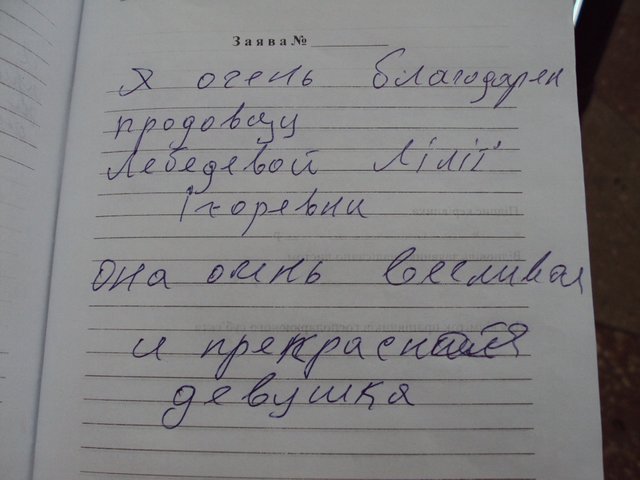 Заява №
Я очень благодарен
продовцу
Лебедевой Лілії
Ігоревни
она очень
и прекрасная
девушка